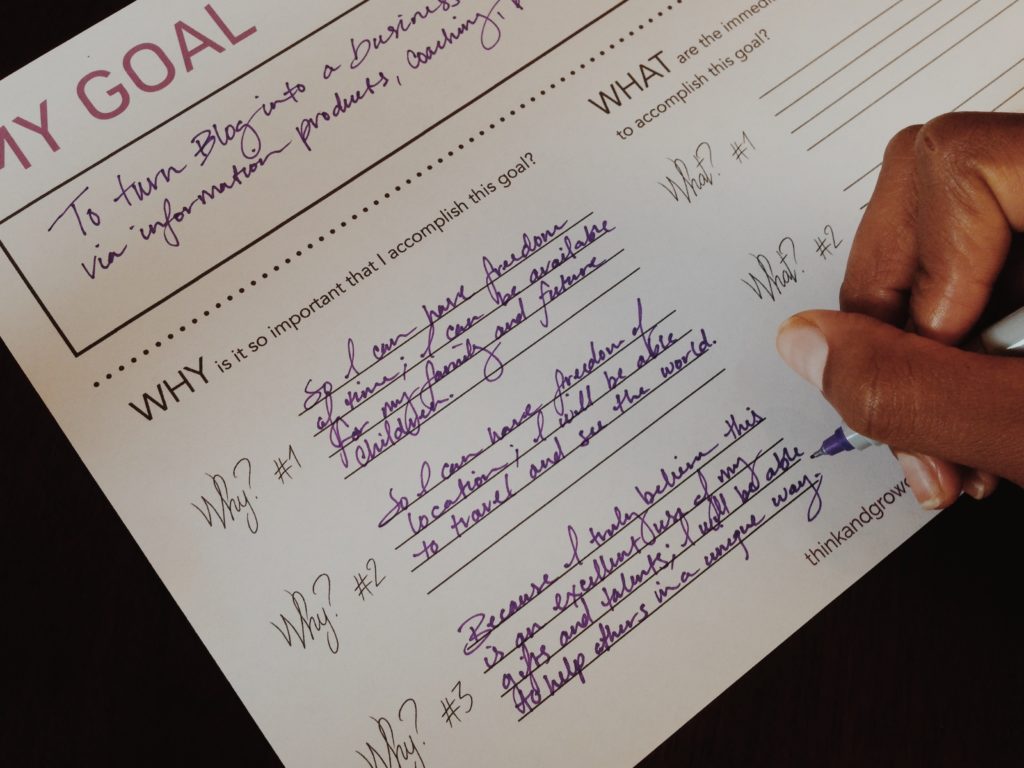 MY GOAL
To turn Blog into a business
via information products, coaching,
WHY is it so important that I accomplish this goal?
Why? #1
So I can have freedom
of time; I can be available
for my family and future
children.
Why? #2
So I can have freedom of
location; I will be able
to travel and see the world.
Why? #3
Because I truly believe this
is an excellent use of my
gifts and talents; I will be able
to help others in a unique way.
WHAT are the immedi
to accomplish this goal?
What? #1
What? #2
thinkandgrow